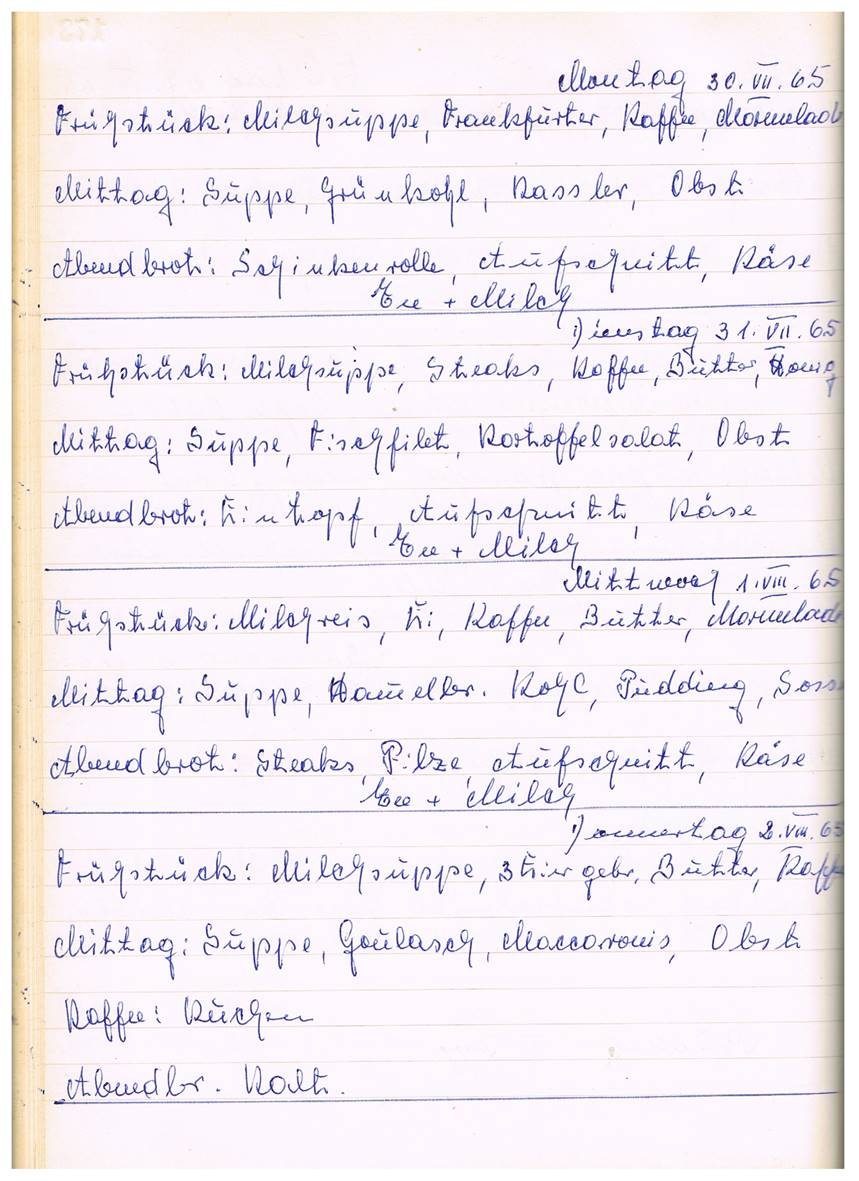 Montag 30. VII. 65
Frühstück: Milchsuppe, Frankfurter, Kaffee, Marmelad
Mittag: Suppe, Grünkohl, Kassler, Obst
Abendbrot: Schinkenrolle, Aufschnitt, Käse
Tee + Milch
Dienstag 31. VII. 65
Frühstück: Milchsuppe, Steaks, Kaffee, Butter, Honig
Mittag: Suppe, Fischfilet, Kartoffelsalat, Obst
Abendbrot: Eintopf, Aufschnitt, Käse
Tee + Milch
Mittwoch 1. VIII. 65
Frühstück: Milchreis, Ei, Kaffee, Butter, Marmelade
Mittag: Suppe, Hammelbr. Kohl, Pudding, Soss
Abendbrot: Steaks, Pilze, Aufschnitt, Käse
Tee + Milch
Donnertag 2. VIII. 65
Frühstück: Milchsuppe, 3 Eier gebr. Butter, Kaff
Mittag: Suppe, Goulasch, Maccaronis, Obst
Kaffee: Kuchen
Abendbr. Kalt.